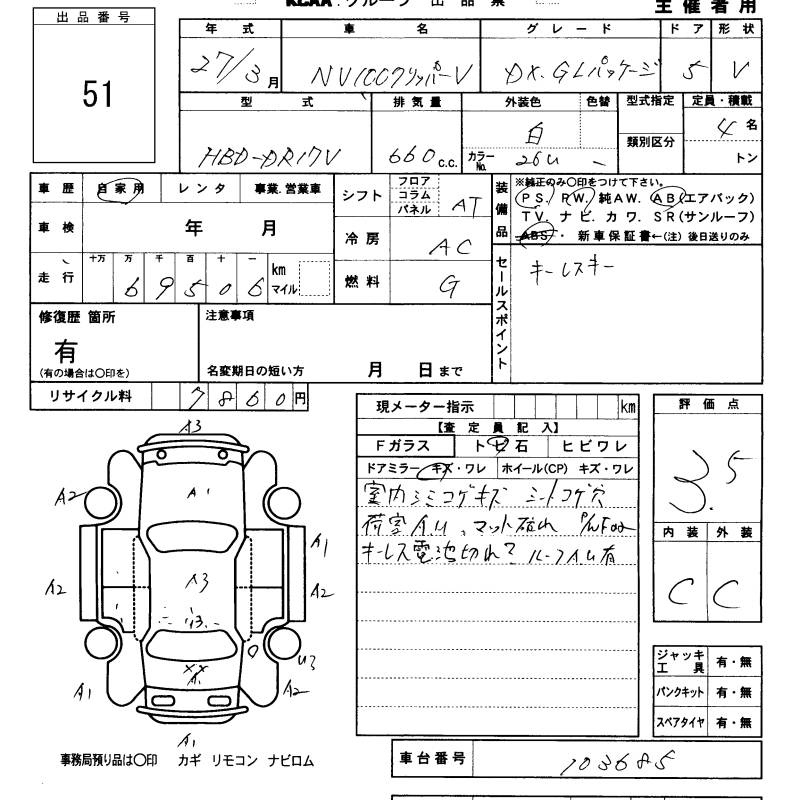 KCAA．グループ 出品票 主催者用
出品番号
51
年式 車名 グレード ドア 形状
27/3月 NV100クリッパーV DX.GLパッケージ 5 V
型式 排気量 外装色 色替 型式指定 定員・積載
HBD-DR17V 660c.c. 白 類別区分 4名
カラーNo. 26U - トン
車歴 自家用 レンタ 事業.営業車
車検 年 月
走行 十万 万 千 百 十 一 km マイル
69506
シフト フロア コラム パネル AT
冷房 AC
燃料 G
装備品 ※純正のみ○印をつけて下さい。
PS. PW. 純AW. AB(エアバック)
TV. ナビ. カワ. SR(サンルーフ)
ABS・ 新車保証書←(注) 後日送りのみ
セールスポイント
キーレスキー
修復歴 箇所
有
(有の場合は○印を)
注意事項
名変期日の短い方 月 日まで
リサイクル料 7860円
現メーター指示 km
【査定員記入】
Fガラス トビ石 ヒビワレ
ドアミラー キズ・ワレ ホイール(CP) キズ・ワレ
室内シミコゲキズ シートコゲ穴
荷室AU、マット破れ
キーレス電池切れ? ルーフAU有
評価点
3.5
内装 外装
C C
A3
A1
A2
A1
A2
A3
A2
13.
U3
××
A1
A2
A1
A1
ジャッキ工具 有・無
パンクキット 有・無
スペアタイヤ 有・無
事務局預り品は○印 カギ リモコン ナビロム
車台番号 103685